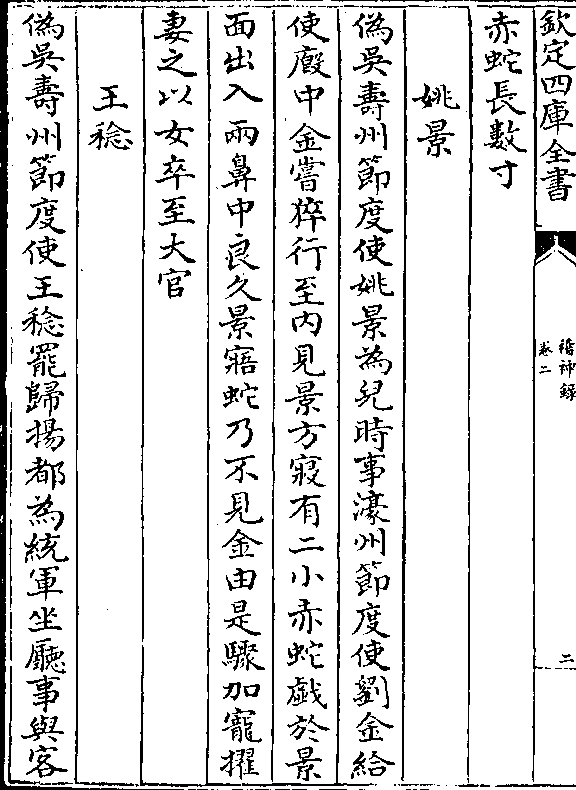 欽定四庫全書
稽神錄
卷二
二
赤蛇長數寸
姚景
偽吳壽州節度使姚景為兒時事濠州節度使劉金給
使廄中金嘗猝行至內見景方寢有二小赤蛇戲於景
面出入兩鼻中良久景寤蛇乃不見金由是驟加寵擢
妻之以女卒至大官
王稔
偽吳壽州節度使王稔罷歸揚都為統軍坐廳事與客